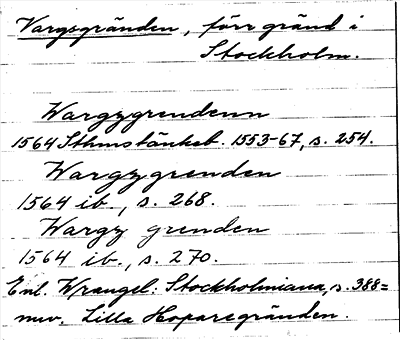 Vargsgränden, förr gränd i
Stockholm.
Wargzgrendenn
1564 Sthmstänkeb. 1553-67, s. 254.
Wargzgrenden
1564 ib., s. 268.
Wargz grenden
1564 ib., s. 270.
Enl. Wrangel: Stockholmiana, s. 388=
nuv. Lilla Hoparegränden.